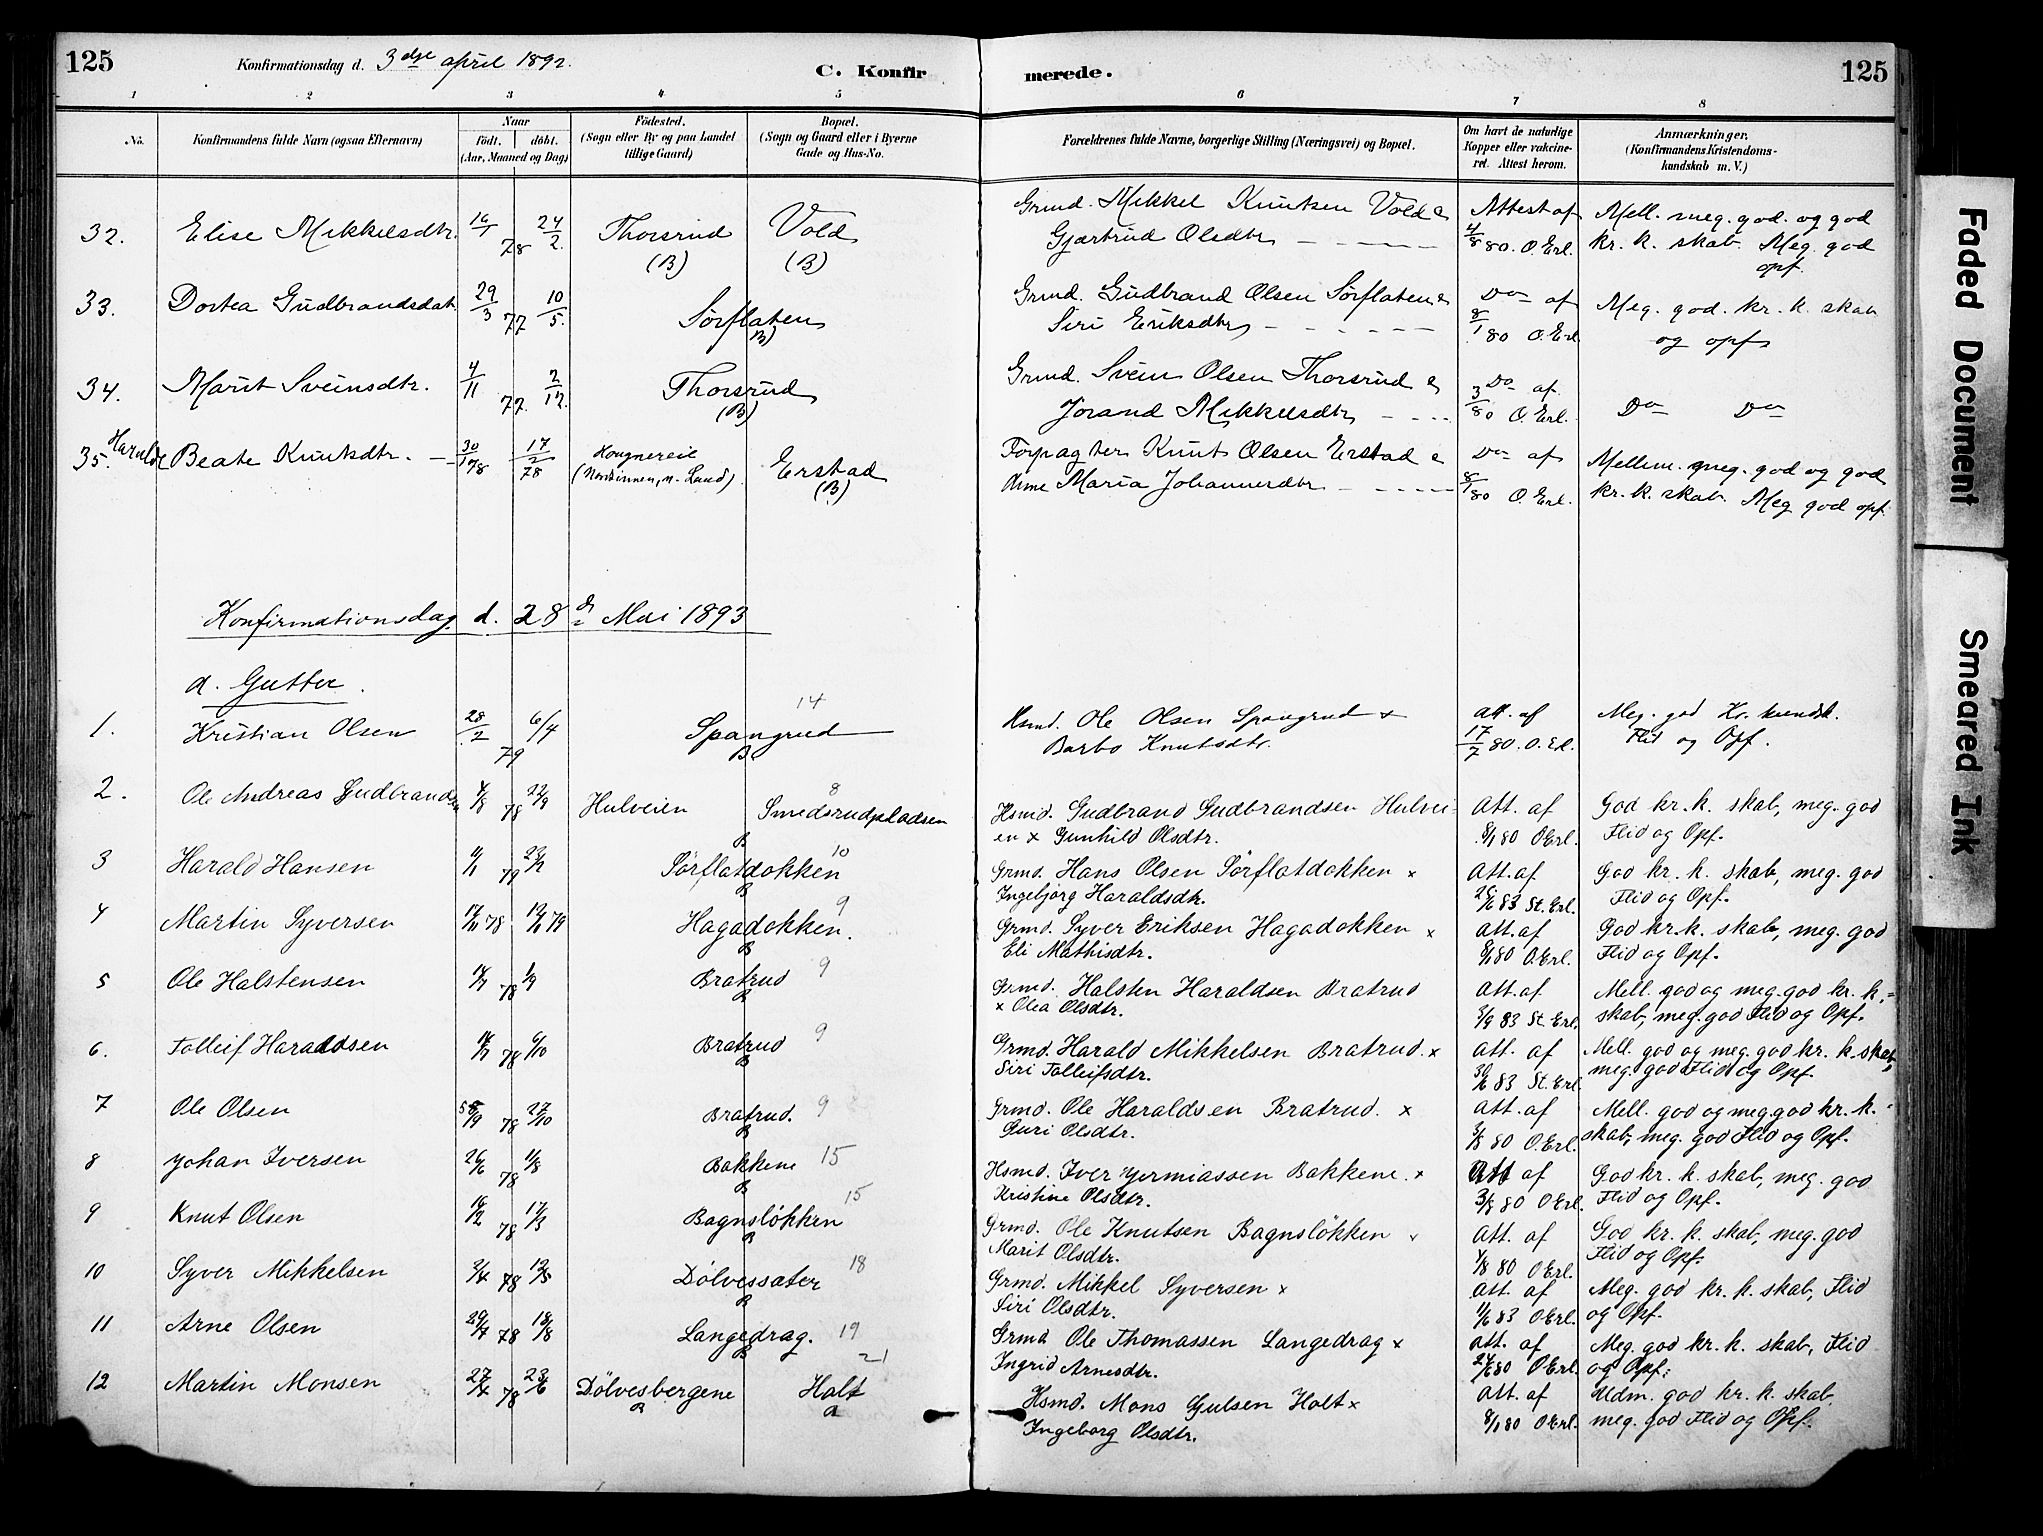 125
Konfirmationsdag d. 3die april 1892.
C. Konfirmerede.
125
1 2 3 4 5 6 7 8
No.
Konfirmandens fulde Navn (ogsaa Efternavn)
Naar
födt. döbt.
(Aar, Maaned og Dag)
Födested.
(Sogn eller By og paa Landet
tillige Gaard)
Bopæl.
(Sogn og Gaard eller i Byerne
Gade og Hus-No.
Forældrenes fulde Navne, borgerlige Stilling (Næringsvei) og Bopæl.
Om havt de naturlige
Kopper eller vakcine-
ret. Attest herom.
Anmærkninger.
(Konfirmandens Kristendoms-
kundskab m. V.)
32. Elise Mikkelsdtr. 78 24/2 Thorsrud (B) Vold (B) Grmd. Mikkel Knutsen Vold &
Gjertrud Olsdtr Attest af 4/8 80. O. Erl. Mell. meg. god. og god
kr. k. skab. Meg. god
opf.
33. Dortea Gudbrandsdatr 29/3 77 10/5. Sørflaten (B) Grmd. Gudbrand Olsen Sørflaten &
Siri Eriksdtr Do af 8/1 80 O. Erl. Meg. god. kr. k. skab
og opf
34. Marit Sveinsdtr. 4/11 77. 2/12. Thorsrud (B) Grmd. Svein Olsen Thorsrud &
Jorand Mikkelsdtr Do af 3/8 80 O. Erl. Do Do
35. Haralde Beate Knutsdtr. 30/1 78 17/2 78 Hougnereie
(Nordsinnen, n. Land) Erstad (B) Forpagter Knut Olsen Erstad &
Anne Maria Johannesdtr Do af 8/1 80 O. Erl. Mellem. meg. god og god
kr. k. skab. Meg god opf.
Konfirmationsdag d. 28de Mai 1893
a. Gutter.
1. Kristian Olsen 28/2 79 6/4 Spangrud B 14 Hsmd. Ole Olsen Spangrud x
Barbo Knutsdtr. att. af 17/7 80. O. Erl. Meg. god Kr. kundsk.
Flid og Opf.
2. Ole Andreas Gudbrandsen 4/8 78 22/9 Hulveien Smedsrudpladsen B 8 Hsmd. Gudbrand Gudbrandsen Hulvei-
en x Gunhild Olsdtr. Att. af 8/1 80 O Erl. God kr. k. skab, meg. god
Flid og Opf.
3 Harald Hansen 79 Sørflatdokken B 10 Grmd. Hans Olsen Sørflatdokken x
Ingebjørg Haraldsdtr. Att. af 83 St. Erl. God kr. k. skab, meg. god
Flid og Opf.
4 Martin Syversen 78 79 Hagadokken. B 9 Grmd. Syver Eriksen Hagadokken x
Eli Mathisdtr. att. af 8/1 80 O.Erl. God kr. k. skab, meg. god
Flid og Opf.
5 Ole Halstensen 78 1/9 Bratrud B 9 Grmd. Halsten Haraldsen Bratrud
x Olea Olsdtr. Att. af 3/9 83 St. Erl. Mell. god og meg. god kr. k.
skab, meg. god Flid og Opf.
6. Tolleif Haraldsen 78 6/10 Bratrud B 9 Grmd. Harald Mikkelsen Bratrud. x
Siri Tolleifsdtr. Att. af 30/6 83 St. Erl. Mell. god og meg. god kr. k. skab,
meg. god Flid og Opf.
7 Ole Olsen 78 27/10 Bratrud. B 9 Grmd. Ole Haraldsen Bratrud. x
Guri Olsdtr. Att. af 3/8 80 O. Erl. Mell. god og meg. god kr. k.
skab, meg. god Flid og Opf.
8 Johan Iversen 26/6 78 11/8 Bakkene B 15 Hsmd. Iver Yermiassen Bakkene. x
Kristine Olsdtr. Att af 3/8 80 O Erl. God kr. k. skab, meg. god
Flid og Opf.
9 Knut Olsen 16/2 78 17/3 Bagnsløkken B 15 Grmd. Ole Knutsen Bagnsløkken x
Marit Olsdtr. Att. af 1/8 80 O Erl. God kr. k. skab, meg. god
Flid og Opf.
10 Syver Mikkelsen 3/4 78 12/5 Dølvessæter B 18 Grmd. Mikkel Syversen x
Siri Olsdtr. att. af 11/6 83 O Erl. Meg. god kr. k. skab, Flid
og Opf.
11 Arne Olsen 29/7 78 18/8 Langedrag. B 19 Grmd Ole Thomassen Langedrag x
Ingrid Arnesdtr. Att. af 24/6 80 O Erl. Meg. god kr. k. skab, Flid
og Opf.
12 Martin Monsen 27/4 78 23/6 Dølvesbergene B Holt B 21 Hsmd. Mons Gulsen Holt x
Ingeborg Olsdtr. Att. af 8/1 80 O Erl. Udm. god kr. k. skab,
meg. god Flid og Opf.
Faded Document
Smeared Ink